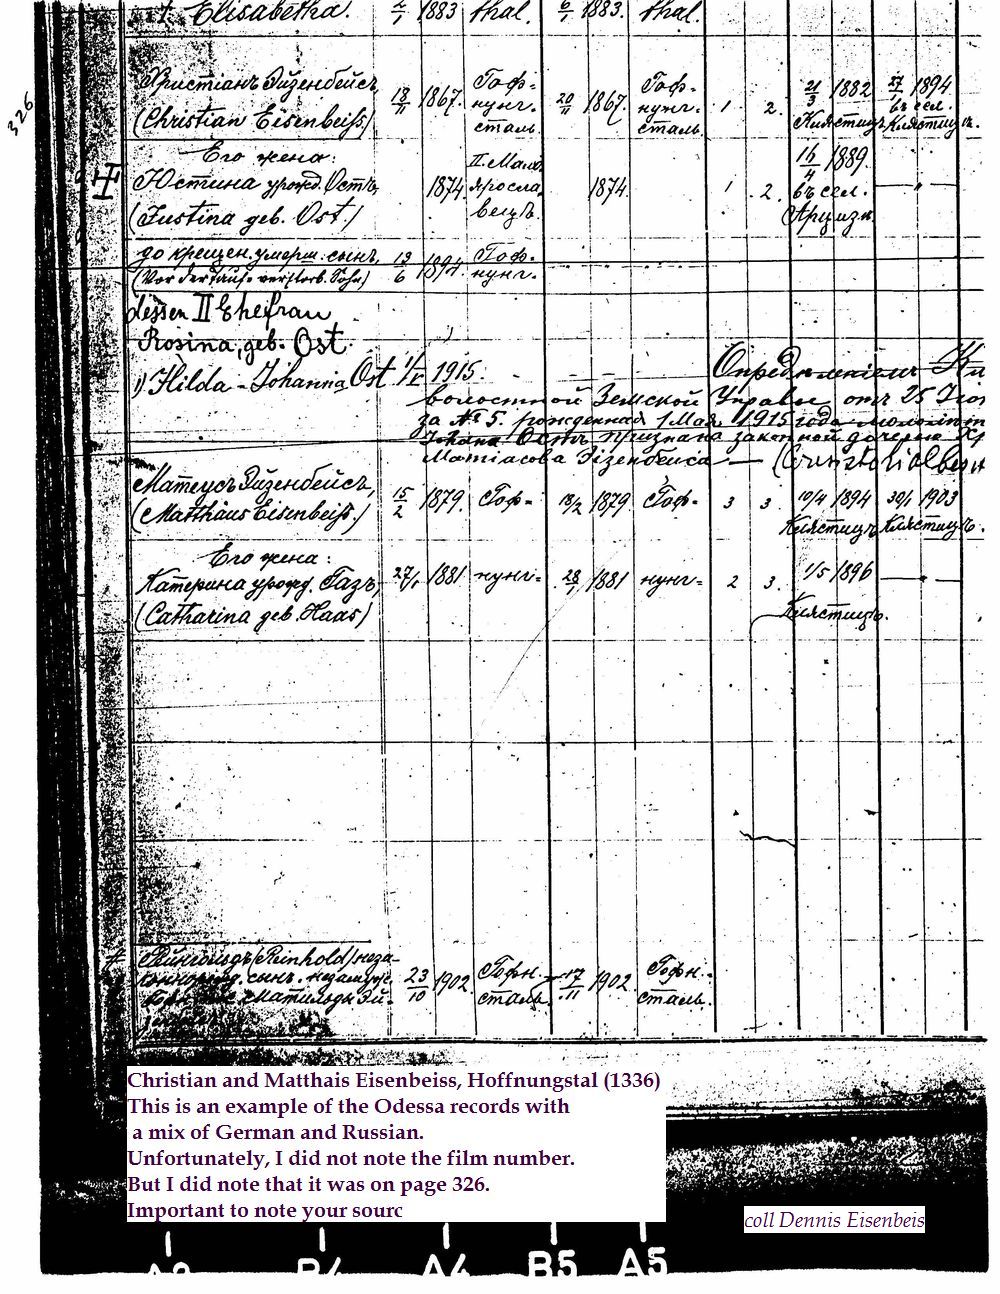 1. Elisabetha. 2/1 1883 thal. 6/1 1883. thal.
326
Христіанъ Эйзенбейсъ, 18/11 1867. Гоф- 20/11 1867. Гоф- 1 2. 21/3 1882 1894
(Christian Eisenbeiß) нунг- нунг- въ сел.
сталь. сталь. Клястицъ Клястицъ.
Его жена: II Мало 16/4 1889.
Юстина урожд. Остъ, 1874. яросла 1874. 1 2. въ сел.
(Justina geb. Ost.) вецъ. Арцизъ
до крещен. умерш. сынъ, 19/6 1894. Гоф-
(Vor der Taufe verstorb. Sohn) нунг.
dessen II Ehefrau
Rosina, geb. Ost.
1) Hilda - Johanna Ost 1/V 1915. Опредѣленіемъ
волостной Земской Управы отъ 25
за № 5. рожденная 1 Мая 1915 года
Остъ признана законной дочерью
Матіасова Эйзенбейса —
Матеусъ Эйзенбейсъ, 15/2 1879. Гоф- 18/2 1879. Гоф- 3 3. 10/4 1894 1903
(Matthäus Eisenbeiß.) Клястицъ Клястицъ.
Его жена:
Катерина урожд. Газъ, 27/1 1881 нунг- 28/1 1881 нунг- 2 3. 1/5 1896
(Catharina geb. Haas) Клястицъ.
Рейнгольдъ (Reinhold) неза-
сынъ. 23/10 1902. Гофн.- 17/11 1902. Гофн.-
Матильды Эй- сталь. сталь.
Christian and Matthais Eisenbeiss, Hoffnungstal (1336)
This is an example of the Odessa records with
a mix of German and Russian.
Unfortunately, I did not note the film number.
But I did note that it was on page 326.
Important to note your sourc
coll Dennis Eisenbeis
A4 B5 A5